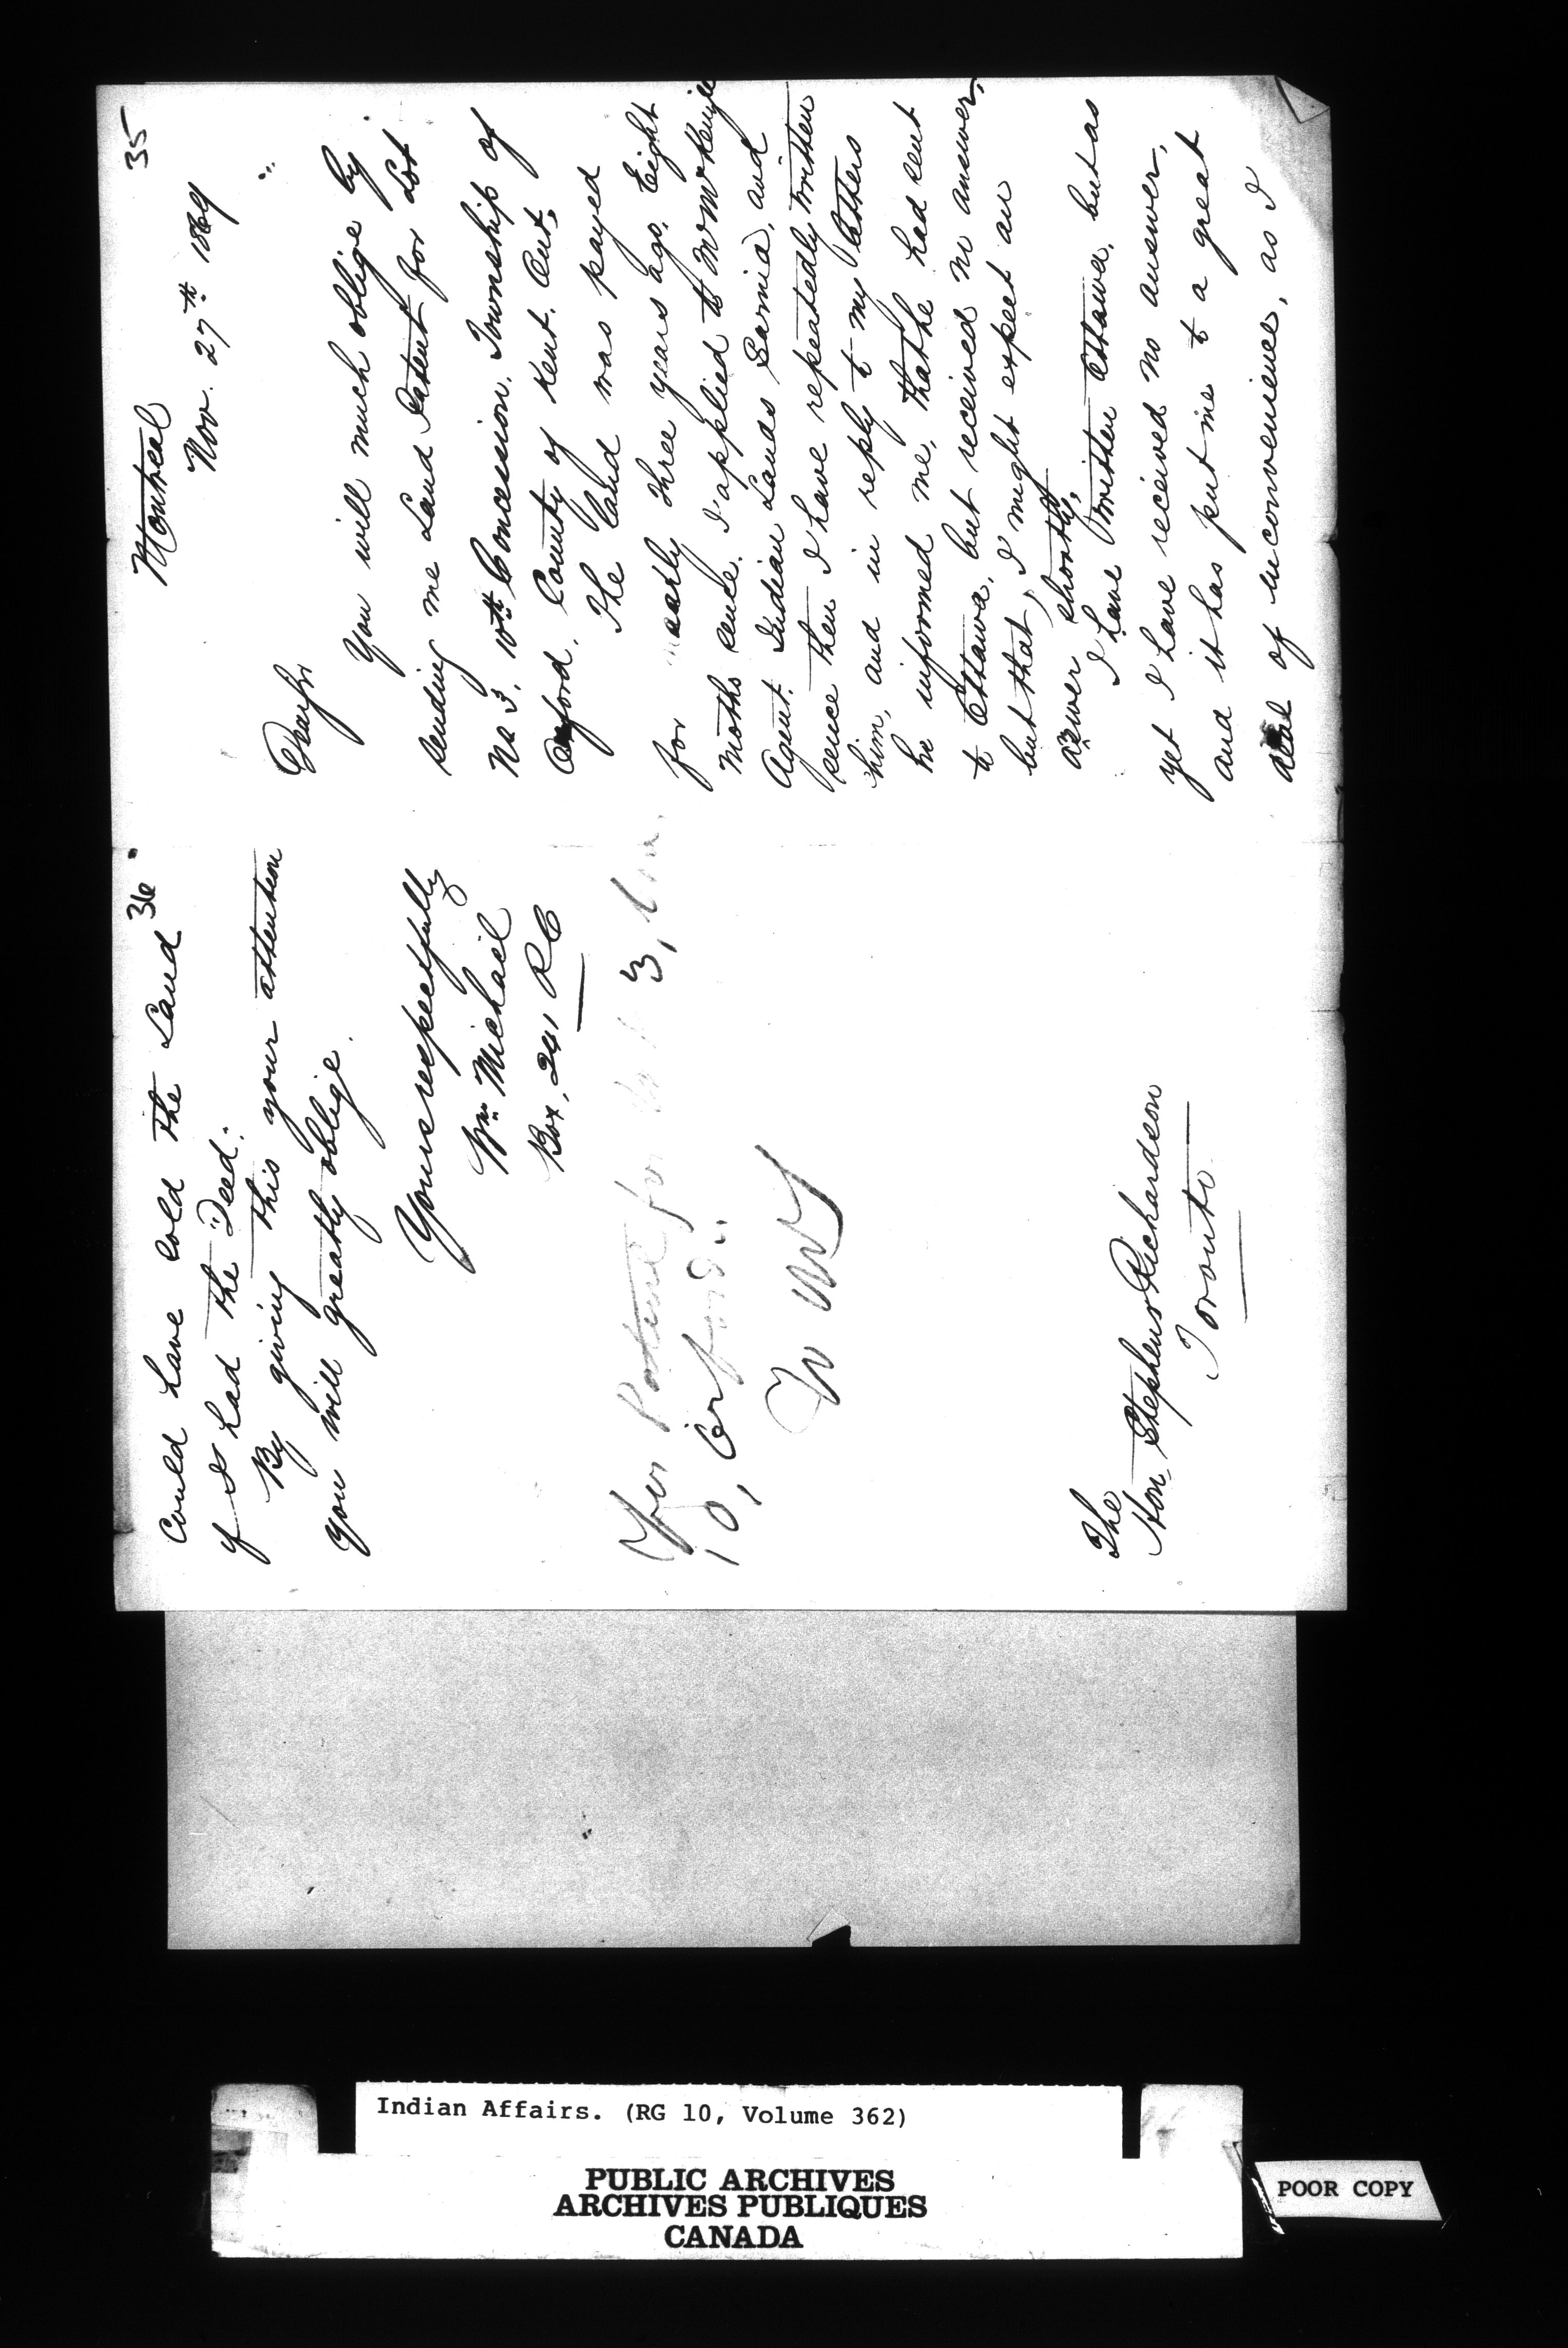 35
Montreal
Nov. 27th 1869
Dear Sir
You will much oblige by
sending me Land Patent for Lot
No 3, 10th Concession, Township of
Orford, County of Kent. Ont.
The land was payed
for nearly three years ago. Eight
moths sence. I applied to Mr McKenzie
Agent. Indian Lands Sarnia, and
sence then I have repeatedly written
him, and in reply to my letters
he informed me, that he had sent
to Ottawa, but received no answer,
but that, I might expect an
answer shortly,
I have written Ottawa, but as
yet I have received no answer,
and it has put me to a great
deal of inconvenience, as I
36
Could have sold the Land
if I had the Deed.
By giving this your attention
you will greatly oblige.
Yours respectfully
Wm Michael
Box, 241 P.O
For Patent for Lot 3, Con.
10, Orford.
The
Hon Stephens Richardson
Toronto
Indian Affairs. (RG 10, Volume 362)
PUBLIC ARCHIVES
ARCHIVES PUBLIQUES
CANADA
POOR COPY